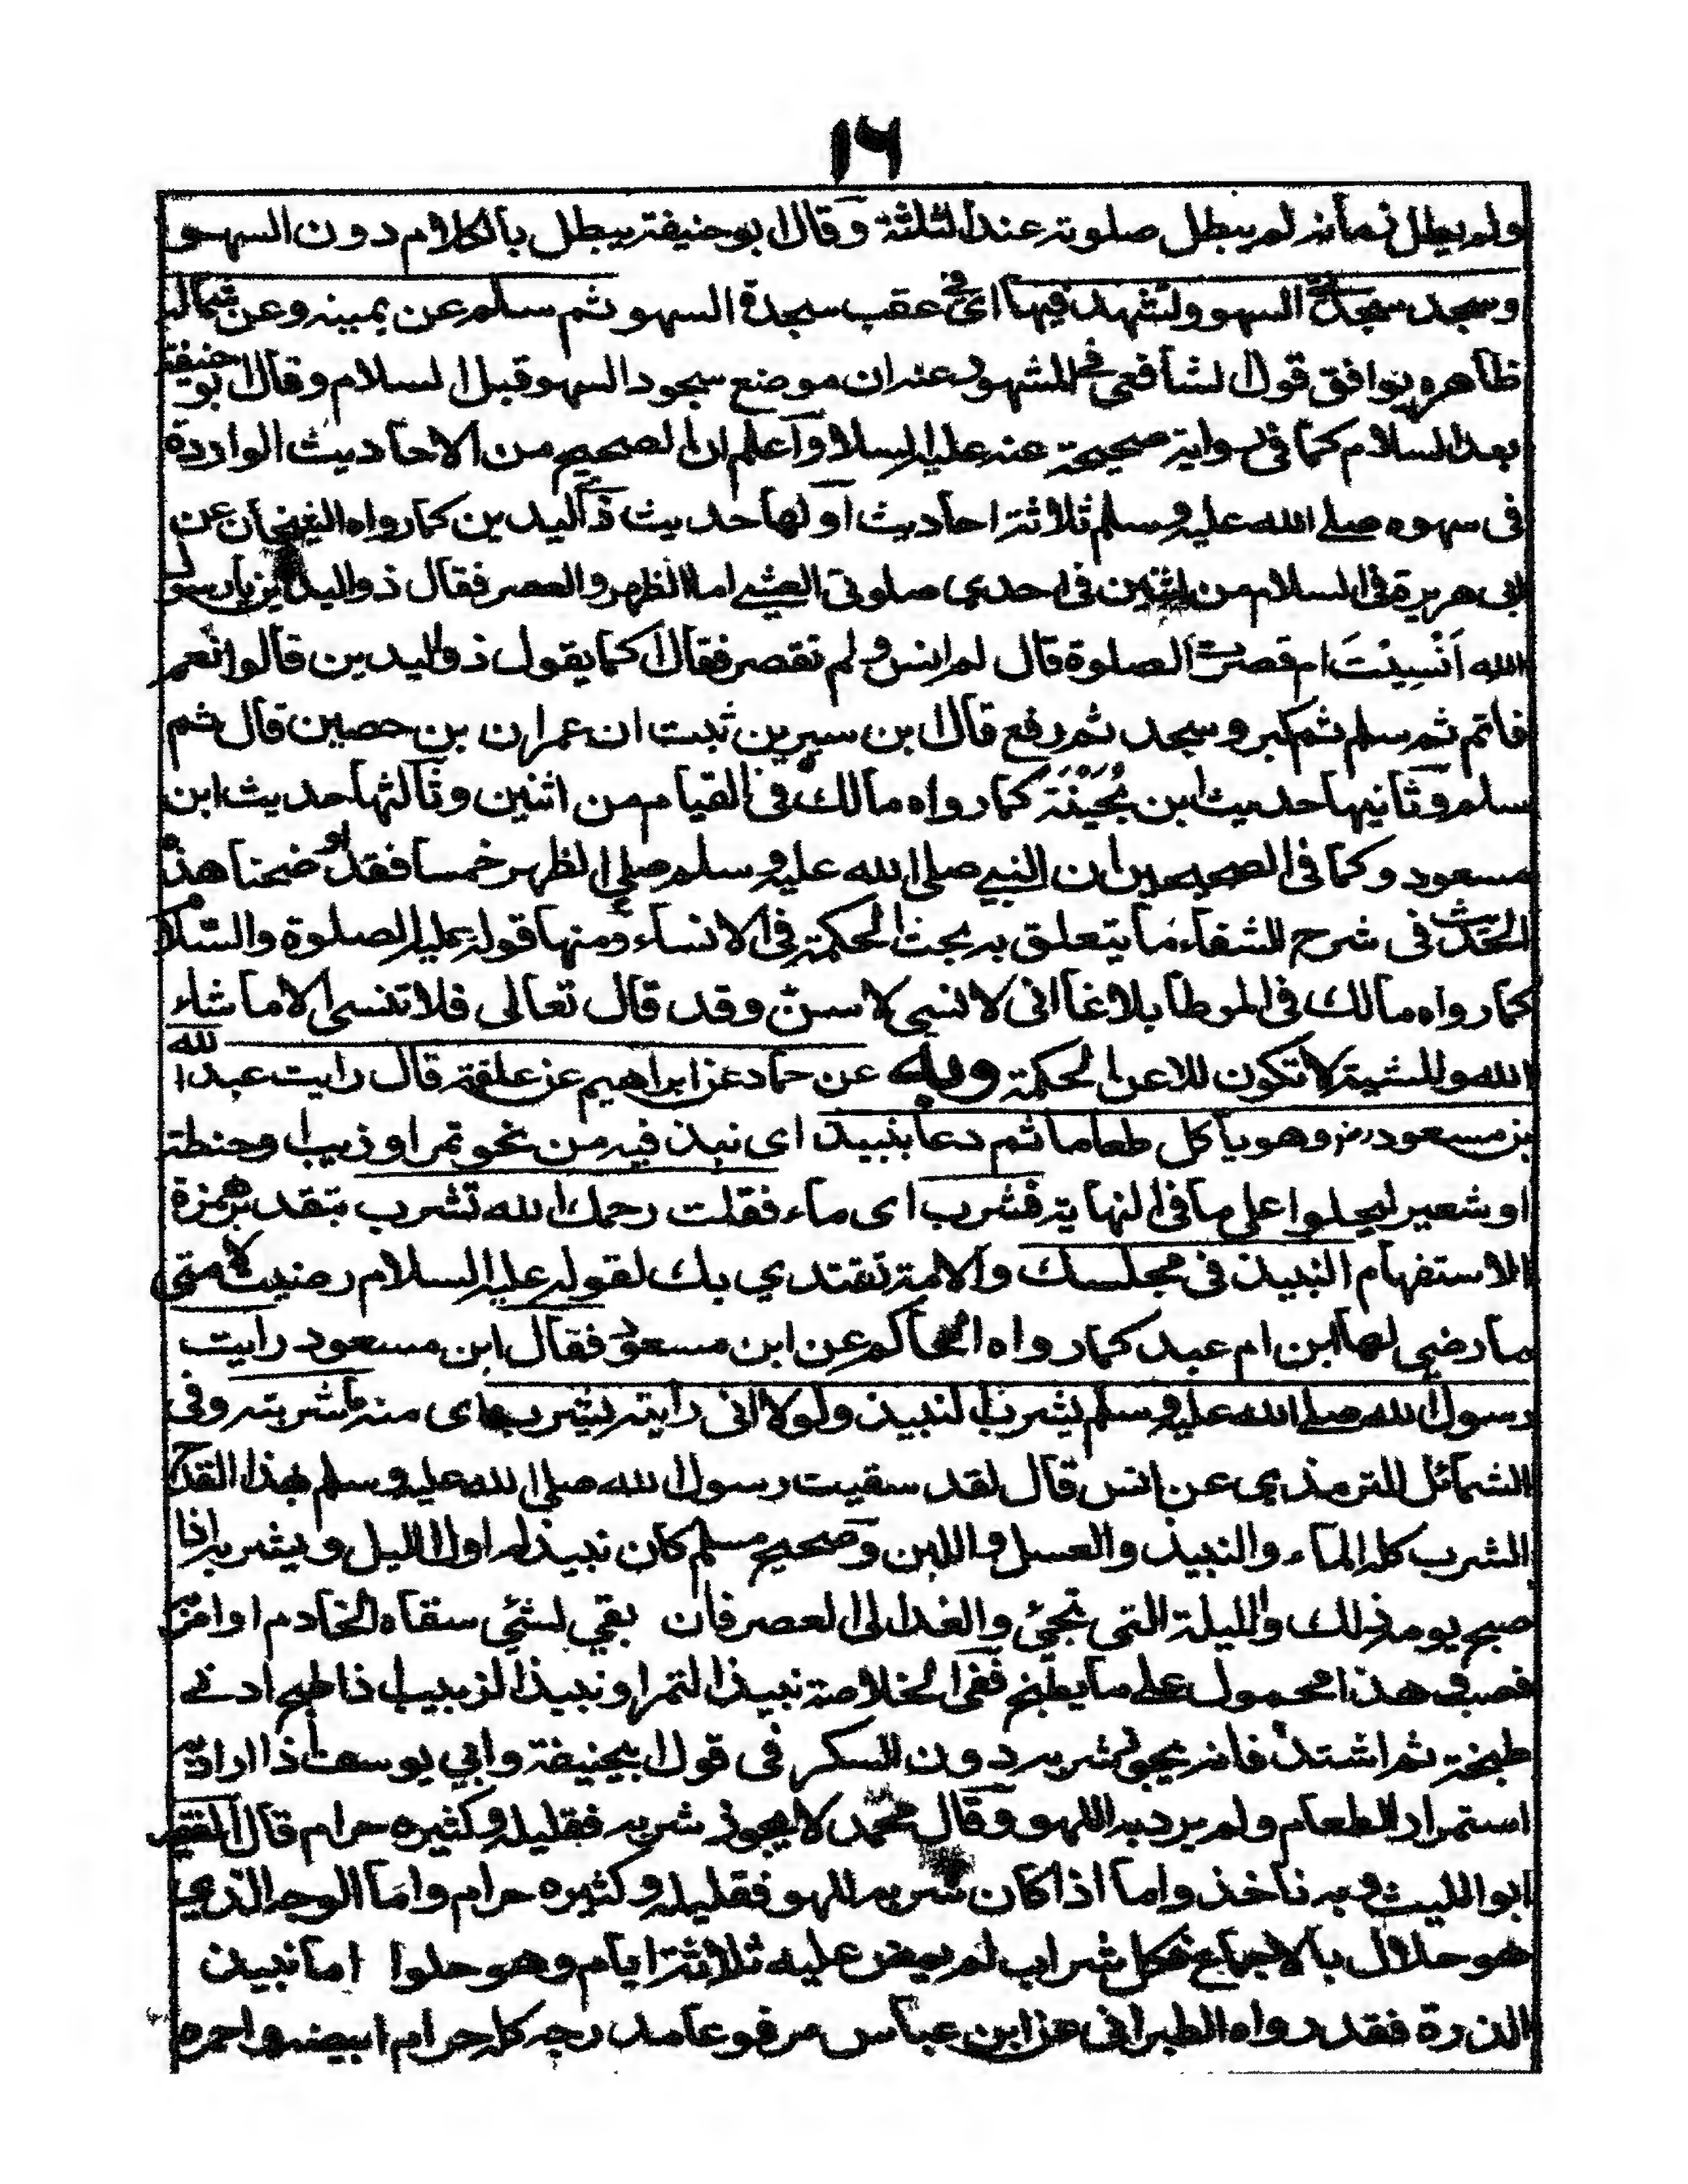 ١٦
ولم يطل زمانه لم يبطل صلوته عند الثلثة وقال ابو حنيفة يبطل بالكلام دون السهو
وسجد سجدتي السهو وتشهد فيها اى في عقب سجدة السهو ثم سلم عن يمينه وعن شماله
ظاهره يوافق قول الشافعي في المشهور عنه ان موضع سجود السهو قبل السلام وقال ابو حنيفة
بعد السلام كما في رواية صحيحة عنه عليه السلام واعلم ان الصحيح من الاحاديث الواردة
فى سهوه صلى الله عليه وسلم ثلاثة احاديث اولها حديث ذي اليدين كما رواه الشيخان عن
ابى هريرة فى السلام من اثنين فى احدى صلوتى العشي اما الظهر والعصر فقال ذو اليدين يا رسول
الله اَنَسِيْتَ ام قصرت الصلوة قال لم انس ولم تقصر فقال اكما يقول ذو اليدين قالوا نعم
فاتم ثم سلم ثم كبر وسجد ثم رفع قال ابن سيرين ثبت ان عمران بن حصين قال ثم
سلم وثانيها حديث ابن بُحَيْنَة كما رواه مالك فى القيام من اثنين وثالثها حديث ابن
مسعود وكما فى الصحيحين ان النبي صلى الله عليه وسلم صلى الظهر خمسا فقد اوضحنا هذه
الحديث فى شرح الشفاء ما يتعلق به بحث الحكمة فى الانساء ومنها قوله عليه الصلوة والسلام
كما رواه مالك فى الموطا بلاغا انى لا نسى لا سن وقد قال تعالى فلا تنسى الا ما شاء
الله والمشية لا تكون الا عن الحكمة وبه عن حماد عن ابراهيم عن علقمة قال رايت عبد الله
بن مسعود رض وهو ياكل طعاما ثم دعا بنبيذ اى نبذ فيه من نحو تمر او زبيب او حنطة
او شعير ليحلوا على ما فى النهاية فشرب اى ماء فقلت رحمك الله تشرب بتقدير همزة
الاستفهام النبيذ فى مجلسك والامة تقتدي بك لقوله عليه السلام رضيت لامتى
ما رضى لها ابن ام عبد كما رواه الحاكم عن ابن مسعود فقال ابن مسعود رايت
رسول الله صلى الله عليه وسلم يشرب النبيذ ولولا انى رايته يشربه اى منه ما شربته وفى
الشمائل للترمذي عن انس قال لقد سقيت رسول الله صلى الله عليه وسلم بهذا القدح
الشرب كله الماء والنبيذ والعسل واللبن وصحيح مسلم كان نبيذ له اول الليل ويشربه اذا
صبح يومه ذلك والليلة التى تجئ والغد الى العصر فان بقي لشئى سقاه الخادم او امر
فصب هذا محمول على ما يطبخ ففى الخلاصة نبيذ التمر او نبيذ الزبيب اذا طبخ ادنى
طبخة ثم اشتد فانه يجوز شربه دون السكر فى قول ابيحنيفة وابي يوسف اذا اراد به
استمراد الطعام ولم يرد به اللهو وقال محمد لا يجوز شربه فقليله وكثيره حرام قال الفقيه
ابو الليث وبه ناخذ واما اذا كان شربه للهو فقليله وكثيره حرام واما الوجه الذي
هو حلال بالاجماع فكل شراب لم يمض عليه ثلاثة ايام وهو حلوا اما نبيذ
الذرة فقد رواه الطبرانى عن ابن عباس مرفوعا كل حرام ابيضه واحمره